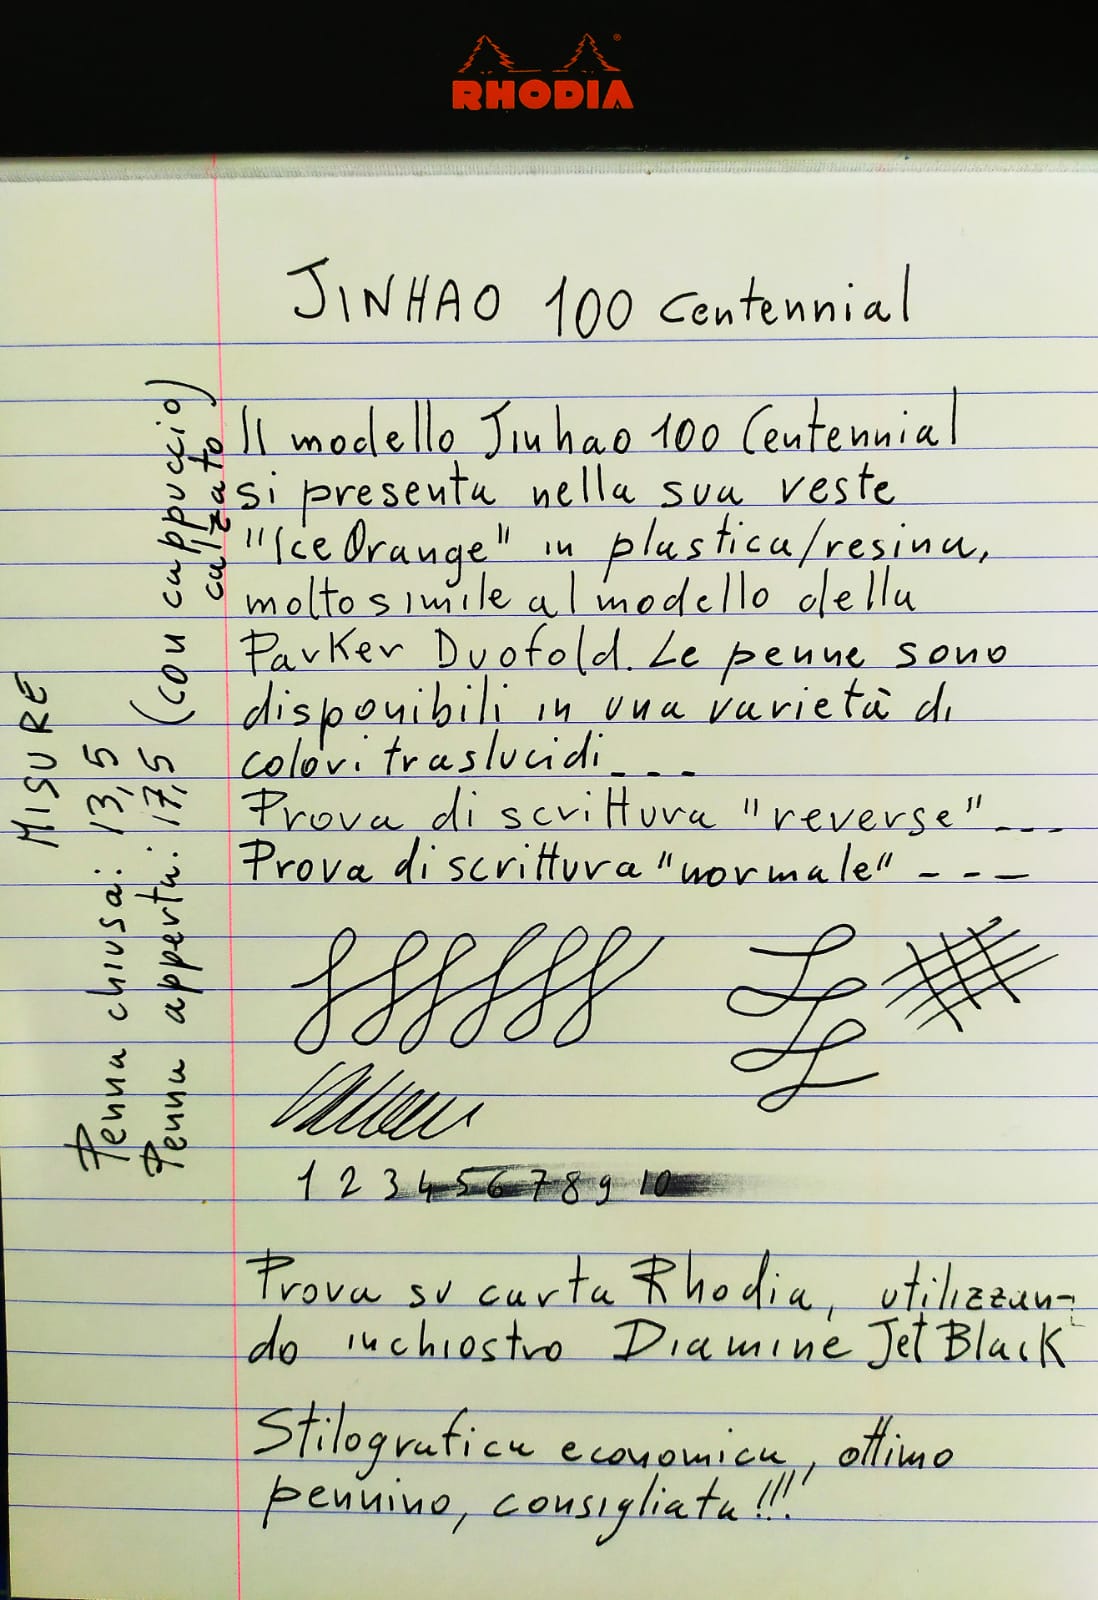 RHODIA
JINHAO 100 Centennial
Il modello Jinhao 100 Centennial
si presenta nella sua veste
"Ice Orange" in plastica/resina,
molto simile al modello della
Parker Duofold. Le penne sono
disponibili in una varietà di
colori traslucidi_ _ _
Prova di scrittura "reverse"_ _ _
Prova di scrittura "normale" _ _ _
1 2 3 4 5 6 7 8 9 10
Prova su carta Rhodia, utilizzan-
do inchiostro Diamine Jet Black
Stilografica economica, ottimo
pennino, consigliata!!!
MISURE
Penna chiusa: 13,5
Penna apperta: 17,5 (con cappuccio)
calzato